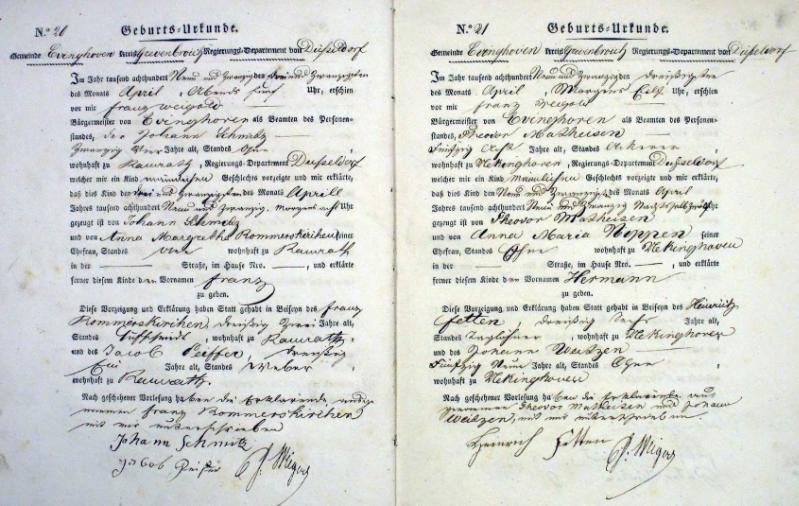 N.º 20 Geburts-Urkunde.
Gemeinde Evinghoven Kreis Grevenbroich Regierungs-Departement von Düsseldorf
Im Jahr tausend achthundert Neun und Zwanzig den drei und Zwanzigsten
des Monats April Abends fünf Uhr, erschien
vor mir Franz Weigold
Bürgermeister von Evinghoven als Beamten des Personen-
standes, der Johann Schmitz
Zwanzig Vier Jahre alt, Standes
wohnhaft zu Ramrath, Regierungs-Departement Düsseldorf
welcher mir ein Kind männlichen Geschlechts vorzeigte und mir erklärte,
daß dies Kind den drei und zwanzigsten des Monats Aprill
Jahres tausend achthundert Neun und Zwanzig, morgens acht Uhr
gezeugt ist von Johann Schmitz
und von Anna Margretha Rommerskirchen seiner
Ehefrau, Standes wohnhaft zu Ramrath
in der — Straße, im Hause Nro. —, und erklärte
ferner diesem Kinde den Vornamen Franz
zu geben.
Diese Vorzeigung und Erklärung haben Statt gehabt in Beiseyn des Franz
Rommerskirchen, dreißig Zwei Jahre alt,
Standes wohnhaft zu Ramrath
und des Jacob Peiffer, dreißig
Jahre alt, Standes Weber
wohnhaft zu Ramrath.
Nach geschehener Vorlesung haben die Erklärende
Franz Rommerskirchen
mit mir unterschrieben
Johann Schmitz
Jacob
N.º 21 Geburts-Urkunde.
Gemeinde Evinghoven Kreis Grevenbroich Regierungs-Departement von Düsseldorf
Im Jahr tausend achthundert Neun und Zwanzig den dreißigsten
des Monats April, Morgens Eilf Uhr, erschien
vor mir Franz Weigold
Bürgermeister von Evinghoven als Beamten des Personen-
standes, Theodor Matheisen
Fünfzig Acht Jahre alt, Standes Ackerer
wohnhaft zu Uekinghoven, Regierungs-Departement Düsseldorf
welcher mir ein Kind männlichen Geschlechts vorzeigte und mir erklärte,
daß dies Kind den Neun und Zwanzigst des Monats April
Jahres tausend achthundert Neun und Zwanzig Uhr
gezeugt ist von Theodor Matheisen
und von Anna Maria Noppen seiner
Ehefrau, Standes Ohne wohnhaft zu Uekinghoven
in der — Straße, im Hause Nro. —, und erklärte
ferner diesem Kinde den Vornamen Hermann
zu geben.
Diese Vorzeigung und Erklärung haben Statt gehabt in Beiseyn des Heinrich
Fetten, dreißig Sechs Jahre alt,
Standes Taglöhner, wohnhaft zu Uekinghoven
und des Johann Weitzen
Fünfzig Neun Jahre alt, Standes Ohne
wohnhaft zu Uekinghoven
Nach geschehener Vorlesung haben die Erklärende
Theodor Matheisen und Johann
Weitzen, mit mir unterschrieben.
Heinrich Fetten